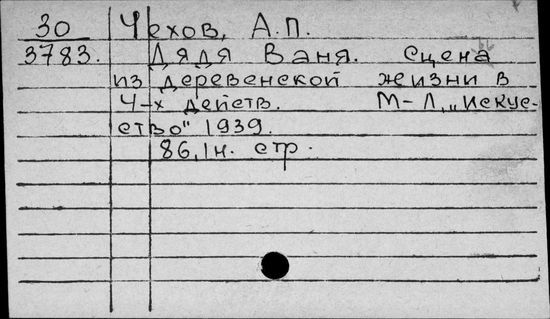 30 Чехов, А.П.
3783. Дядя Ваня. Сцена
из деревенской жизни в
4-х действ. М-Л, „Искус-
ство" 1939.
86, 1н. стр.